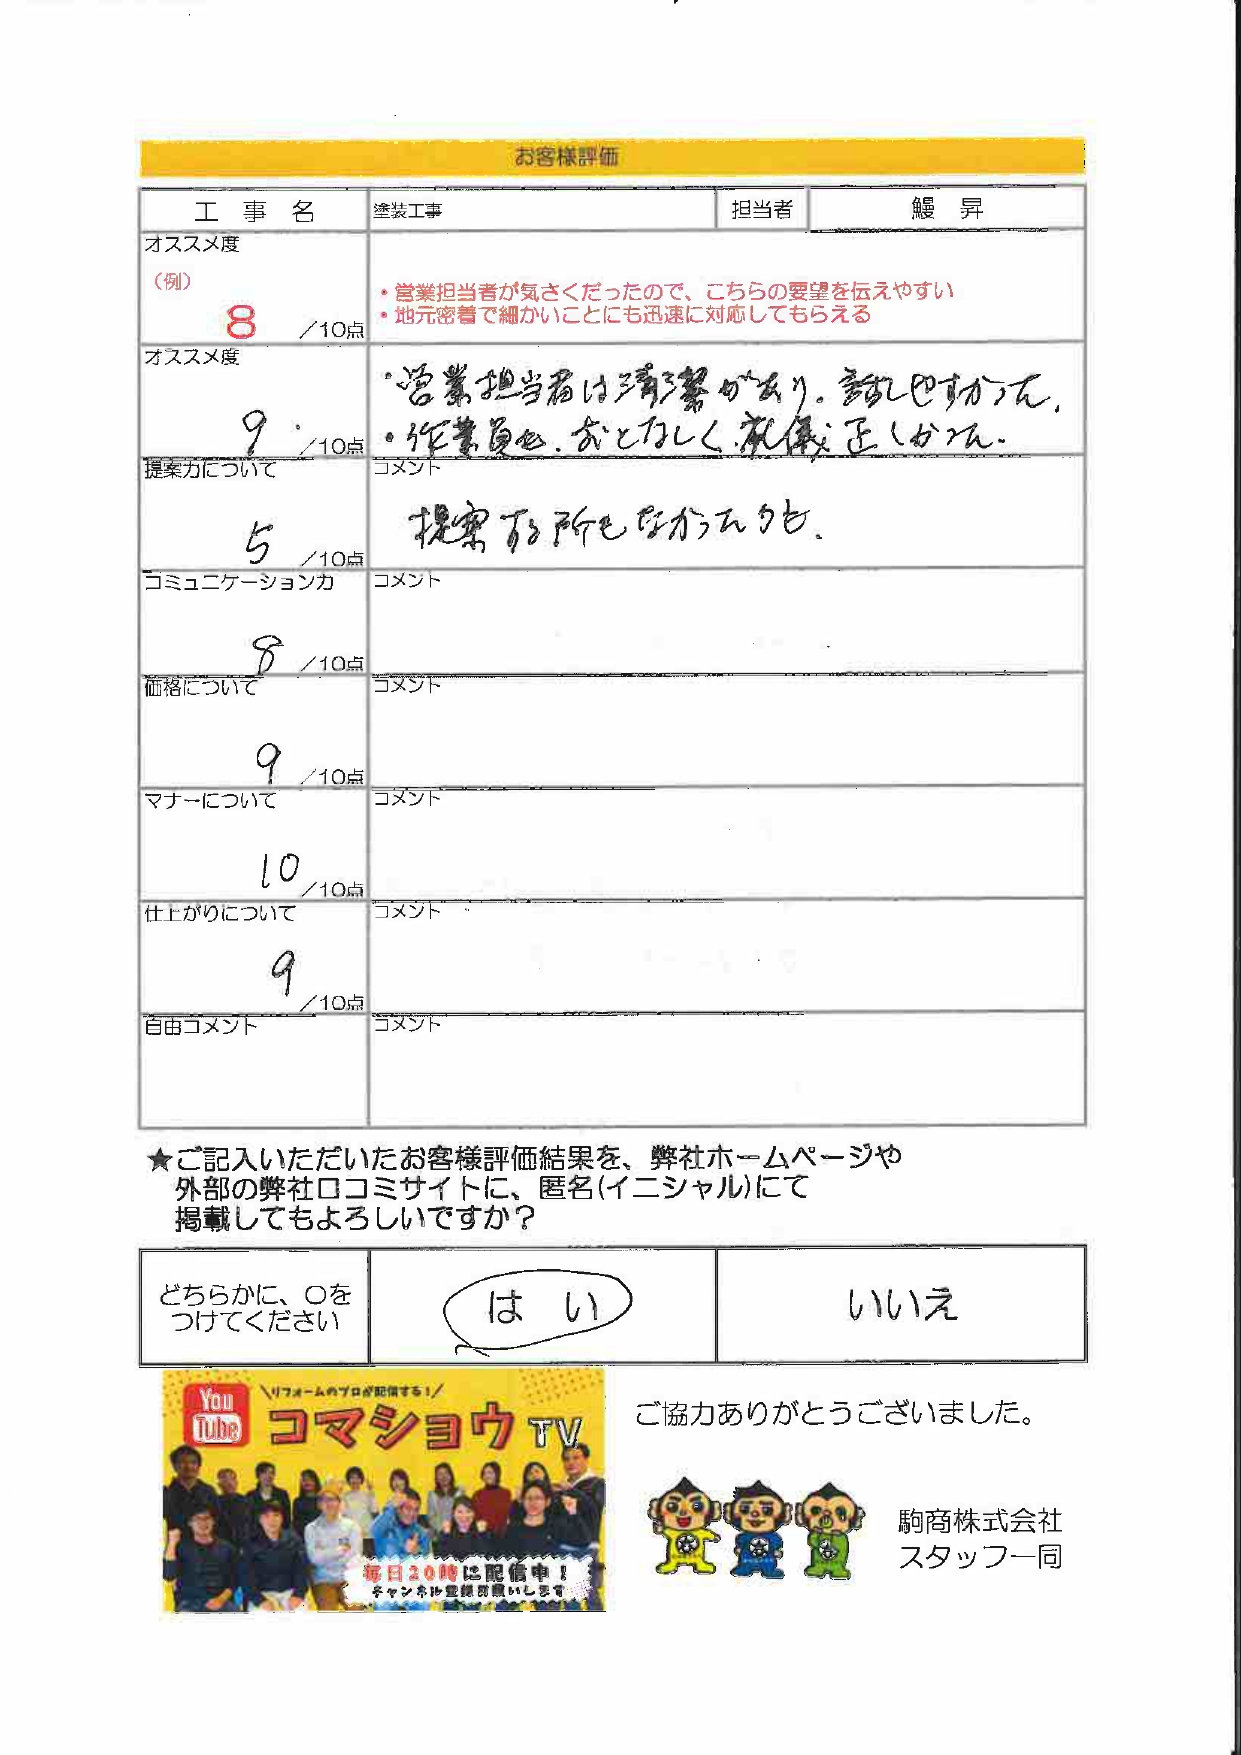 お客様評価
工 事 名 塗装工事 担当者 鰻 昇
オススメ度
（例）
8 ／10点
・営業担当者が気さくだったので、こちらの要望を伝えやすい
・地元密着で細かいことにも迅速に対応してもらえる
オススメ度
9 ／10点
・営業担当者は清潔があり、話しやすかった。
・作業員も、おとなしく、礼儀正しかった。
提案力について
5 ／10点
コメント
提案する所もなかったかも。
コミュニケーション力
8 ／10点
コメント
価格について
9 ／10点
コメント
マナーについて
10 ／10点
コメント
仕上がりについて
9 ／10点
コメント
自由コメント
コメント
★ご記入いただいたお客様評価結果を、弊社ホームページや
外部の弊社口コミサイトに、匿名(イニシャル)にて
掲載してもよろしいですか？
どちらかに、〇を
つけてください
はい
いいえ
You Tube
＼リフォームのプロが配信する！／
コマショウTV
毎日20時に配信中！
チャンネル登録お願いします
ご協力ありがとうございました。
駒商株式会社
スタッフ一同